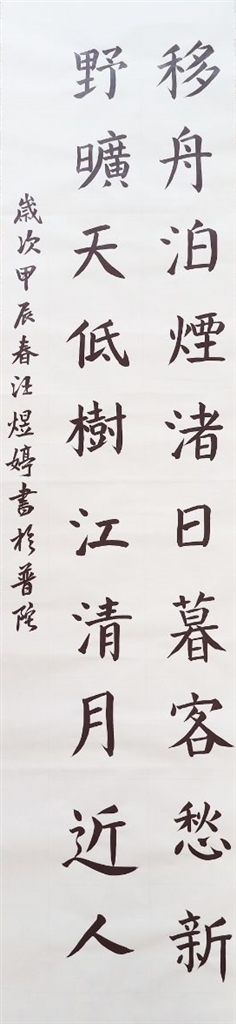 移舟泊煙渚日暮客愁新
野曠天低樹江清月近人
歲次甲辰春汪煜婷書於普陀